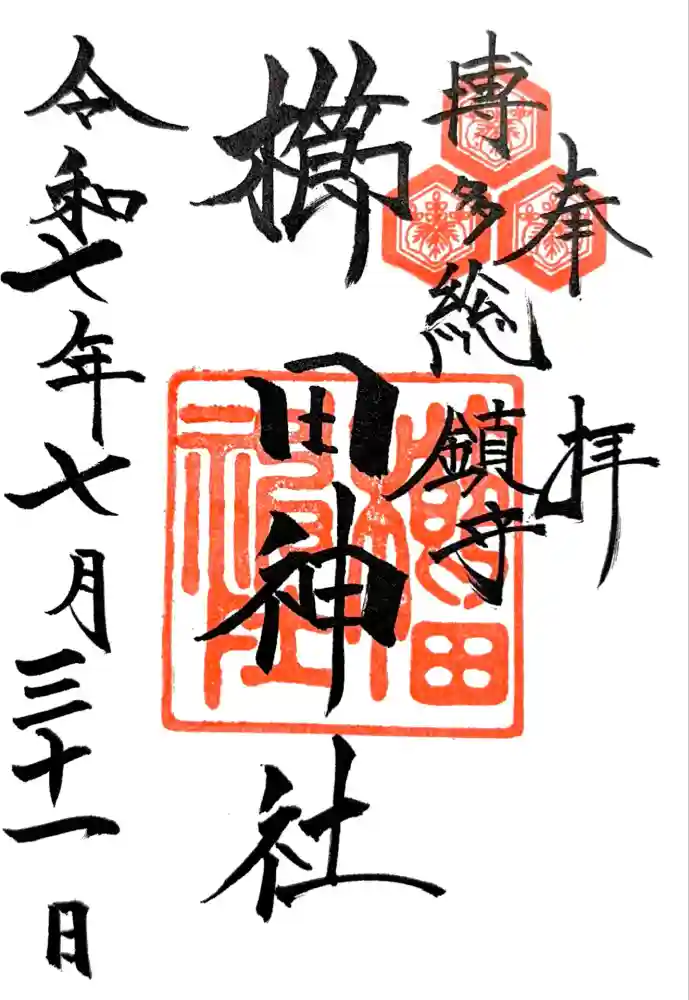 奉拝
博多総鎮守
櫛田神社
令和七年七月三十一日
櫛田神社